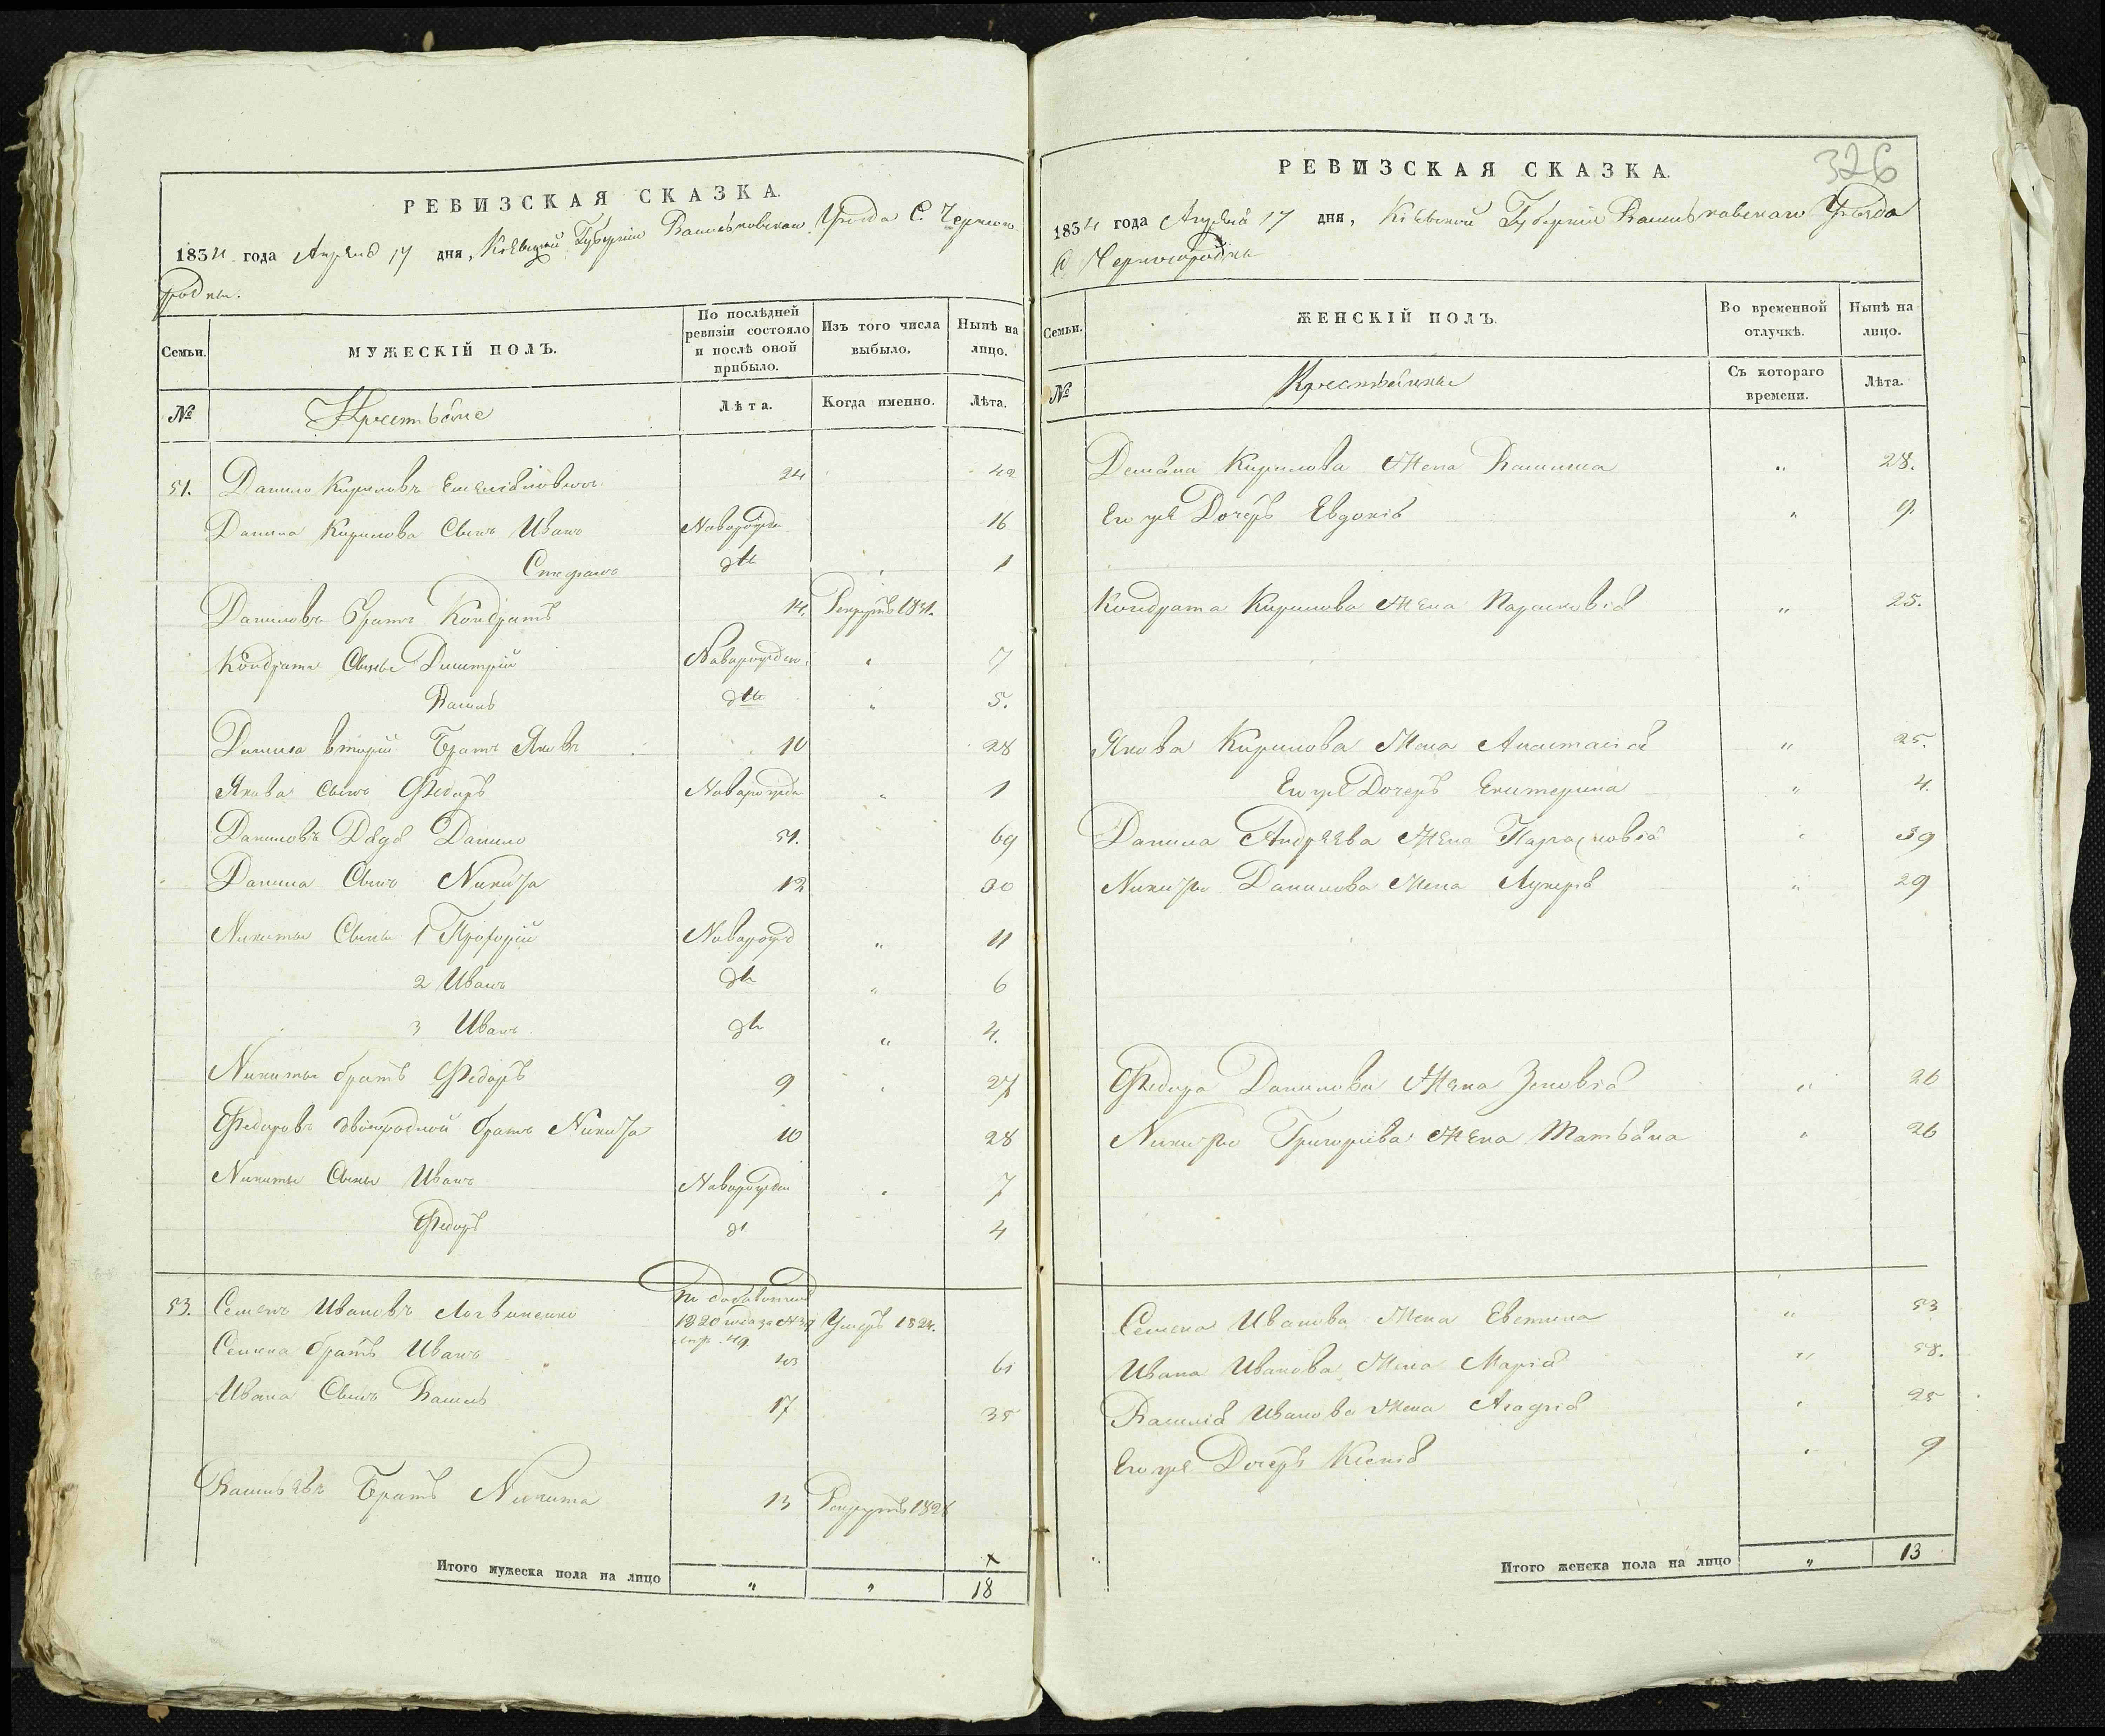 РЕВИЗСКАЯ СКАЗКА.
1834 года Апреля 17 дня, Кіевской Губерніи Васильковскаго Уезда С. Черного
родки.
Семьи.
МУЖЕСКІЙ ПОЛЪ.
По послѣдней ревизіи состояло и послѣ оной прибыло.
Изъ того числа выбыло.
Нынѣ на лицо.
№
Крестьяне
Лѣта.
Когда именно.
Лѣта.
51. Данило Кириловъ 24 42
Данила Кирилова Сынъ Иванъ Наворожде 16
Стефанъ 1
Даниловъ Братъ Кондратъ 14 Рекрутъ 1831.
Кондрата Сыны Димитрій Наворожден 7
Василь 5.
Данила вторій Братъ Яковъ 10 28
Якова Сынъ Федоръ Наворожде „ 1
Даниловъ Дядя Данило 51. 69
Данила Сынъ Никита 12 30
Никиты Сыны 1 Прокопій Наворожд „ 11
2 Иванъ „ 6
3 Иванъ „ 4.
Никиты братъ Федоръ 9 27
Федоровъ двоюродной братъ Никита 10 28
Никиты Сыны Иванъ Наворожден 7
Федоръ 4
53. Семенъ Ивановъ Логвиненко 1820 года Умеръ 1824.
Семена братъ Иванъ 61
Ивана Сынъ Василь 17 35
Васильевъ Братъ Никита 13 Рекрутъ 1828
Итого мужеска пола на лицо „ „ 18
326
РЕВИЗСКАЯ СКАЗКА.
1834 года Апреля 17 дня, Кіевской Губерніи Васильковскаго Уезда
С. Черногородки
Семьи.
ЖЕНСКІЙ ПОЛЪ.
Во временной отлучкѣ.
Нынѣ на лицо.
№
Крестьянки
Съ котораго времени.
Лѣта.
Кирилова Жена „ 28.
Его же Дочерь Евдокія „ 9
Кондрата Кирилова Жена Парасковія „ 25.
Якова Кирилова Жена Анастасія „ 25.
Его же Дочерь Екатерина „ 4.
Данила Андреева Жена Парасковія 39
Никиты Данилова Жена Лукерія „ 29
Федора Данилова Жена Зеновія „ 26
Никиты Григорьева Жена Татьяна „ 26
Семена Иванова Жена „ 53
Ивана Иванова Жена Марія „ 58.
Василія Иванова Жена Агафія 25
Его же Дочерь Ксенія 9
Итого женска пола на лицо „ 13